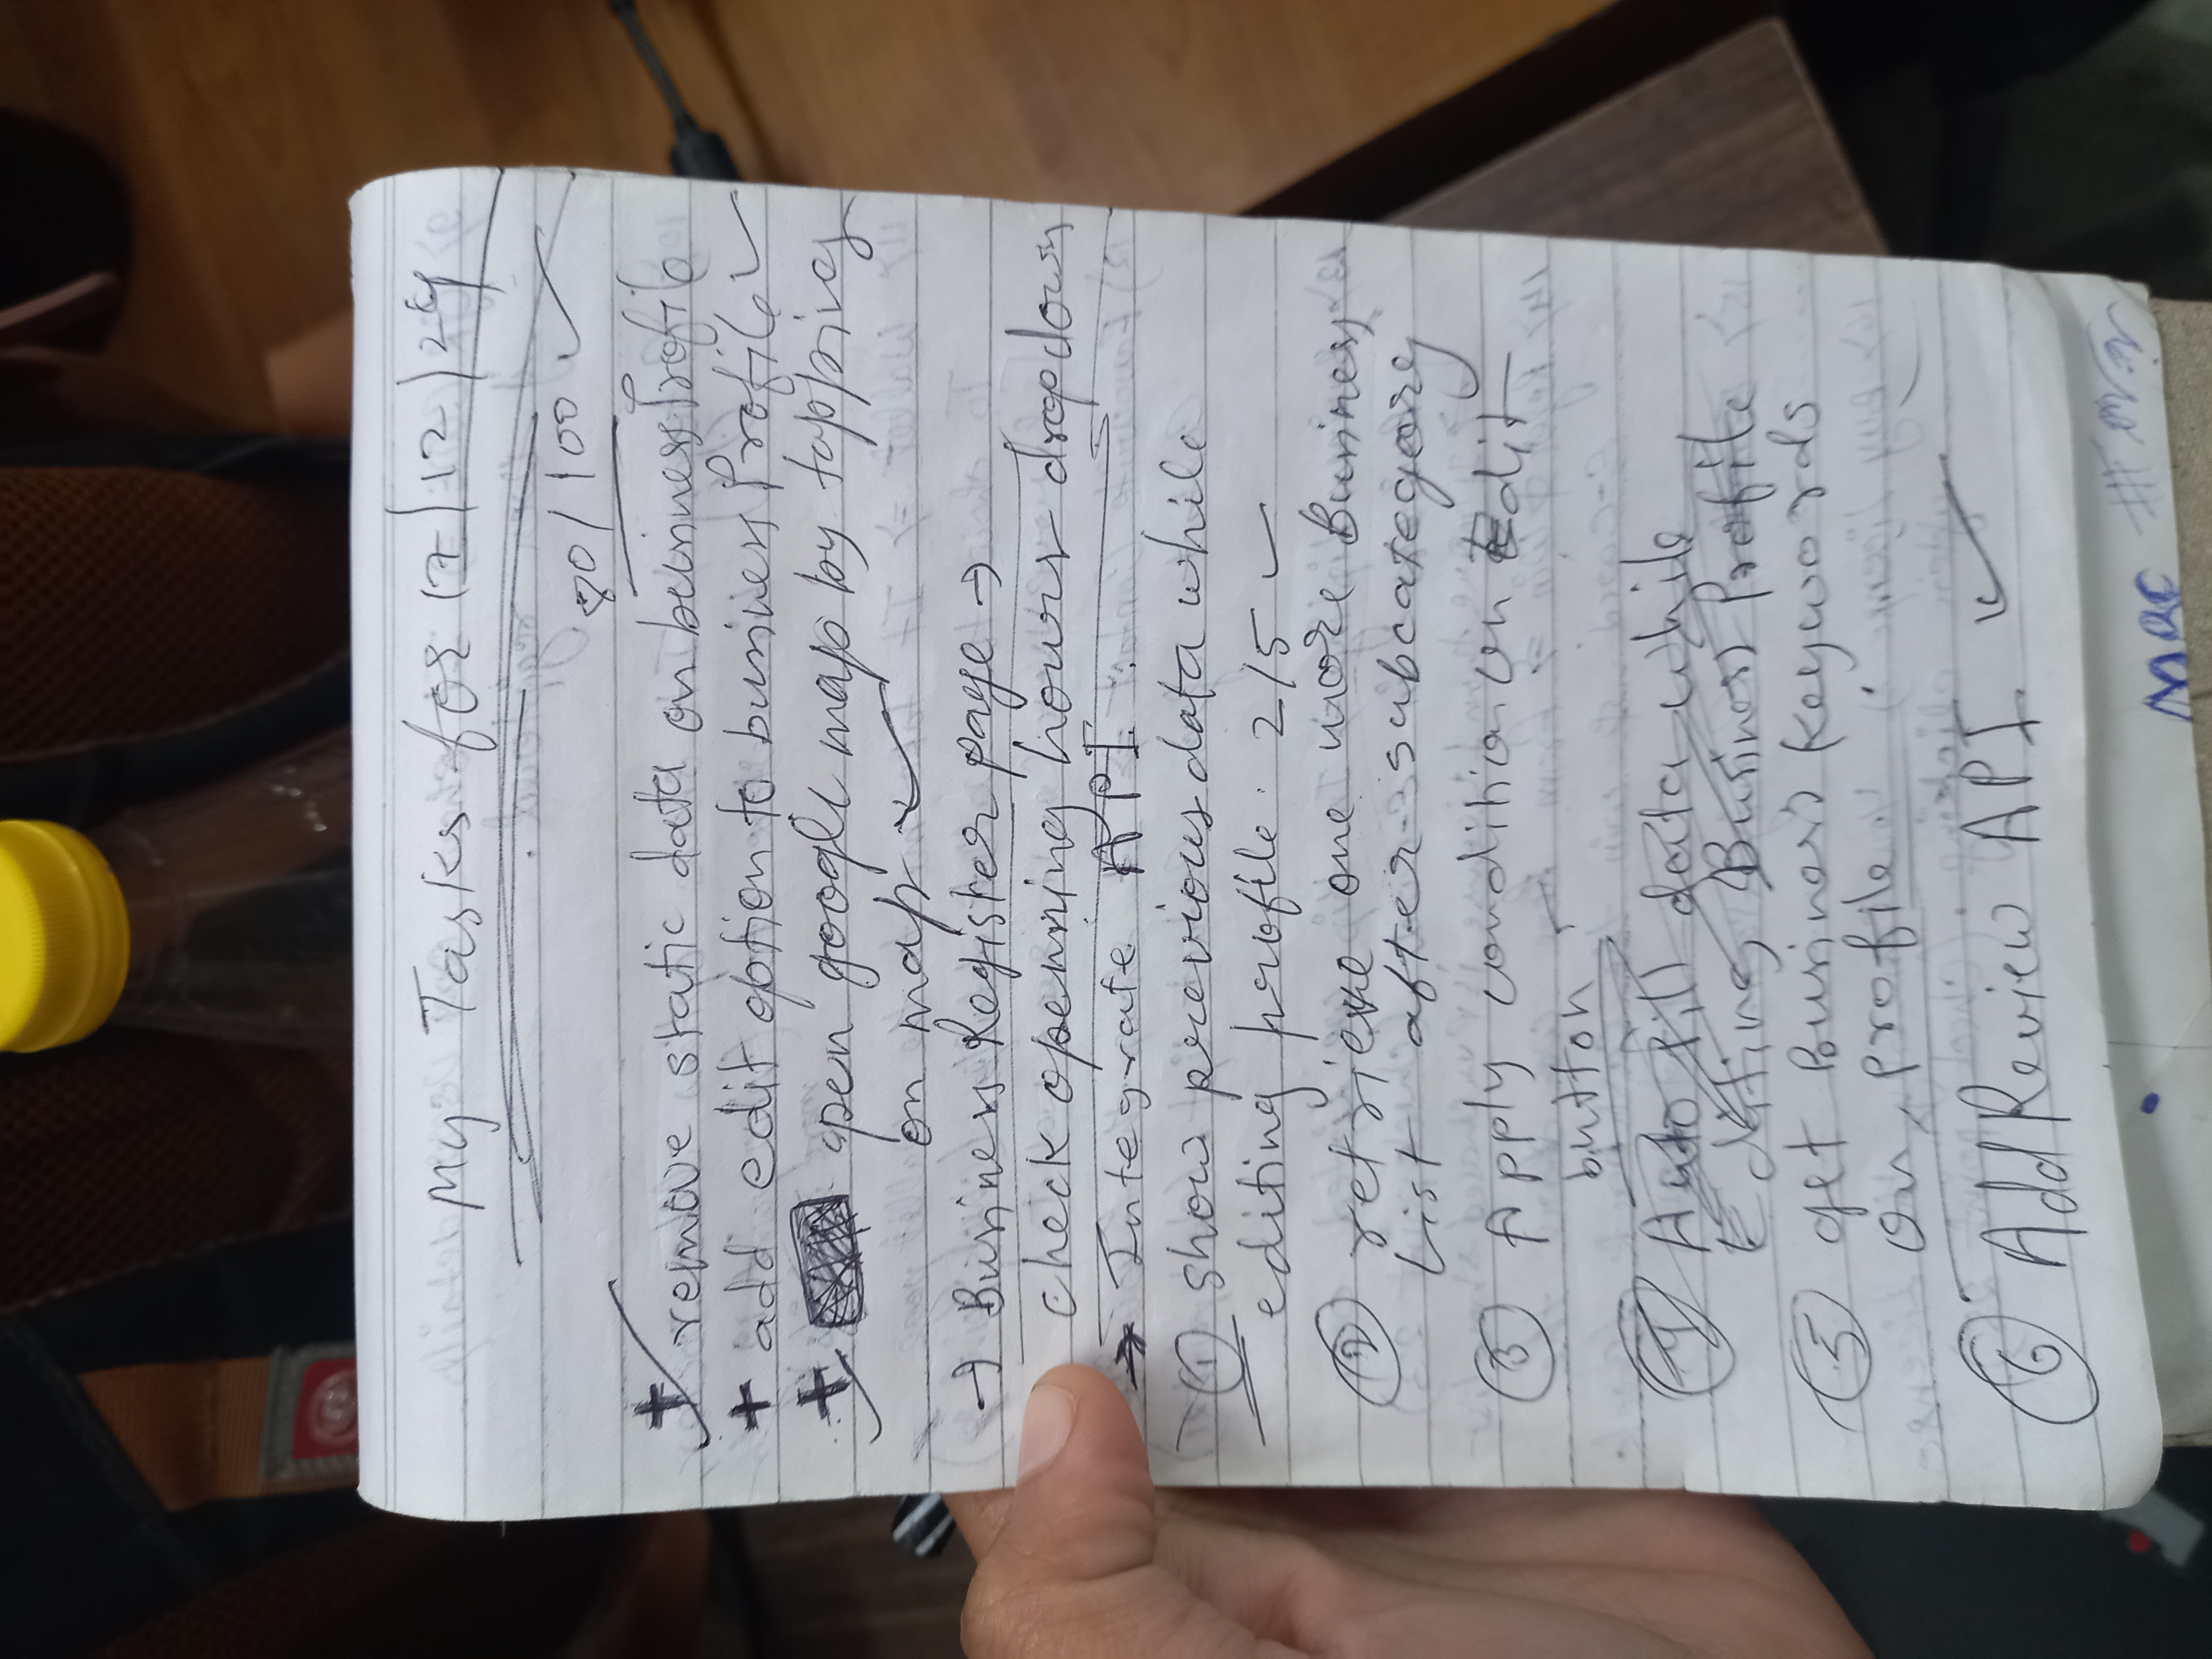 My Tasks for 17/12/24
80/100 ✓
+ remove static data on businessProfile
+ add edit option to business Profile ✓
+ open google map by tapping
on map ✓
→ Business Register page →
check openning hours dropdown
→ Integrate API.
① show previous data while
editing profile. 2/5 ✓
② retrieve one more Business
List after subcategory
③ Apply condition on Edit
button
④ Auto fill data while
Editing Business Profile
⑤ get Business Keywords
on profile
⑥ Add Review API ✓